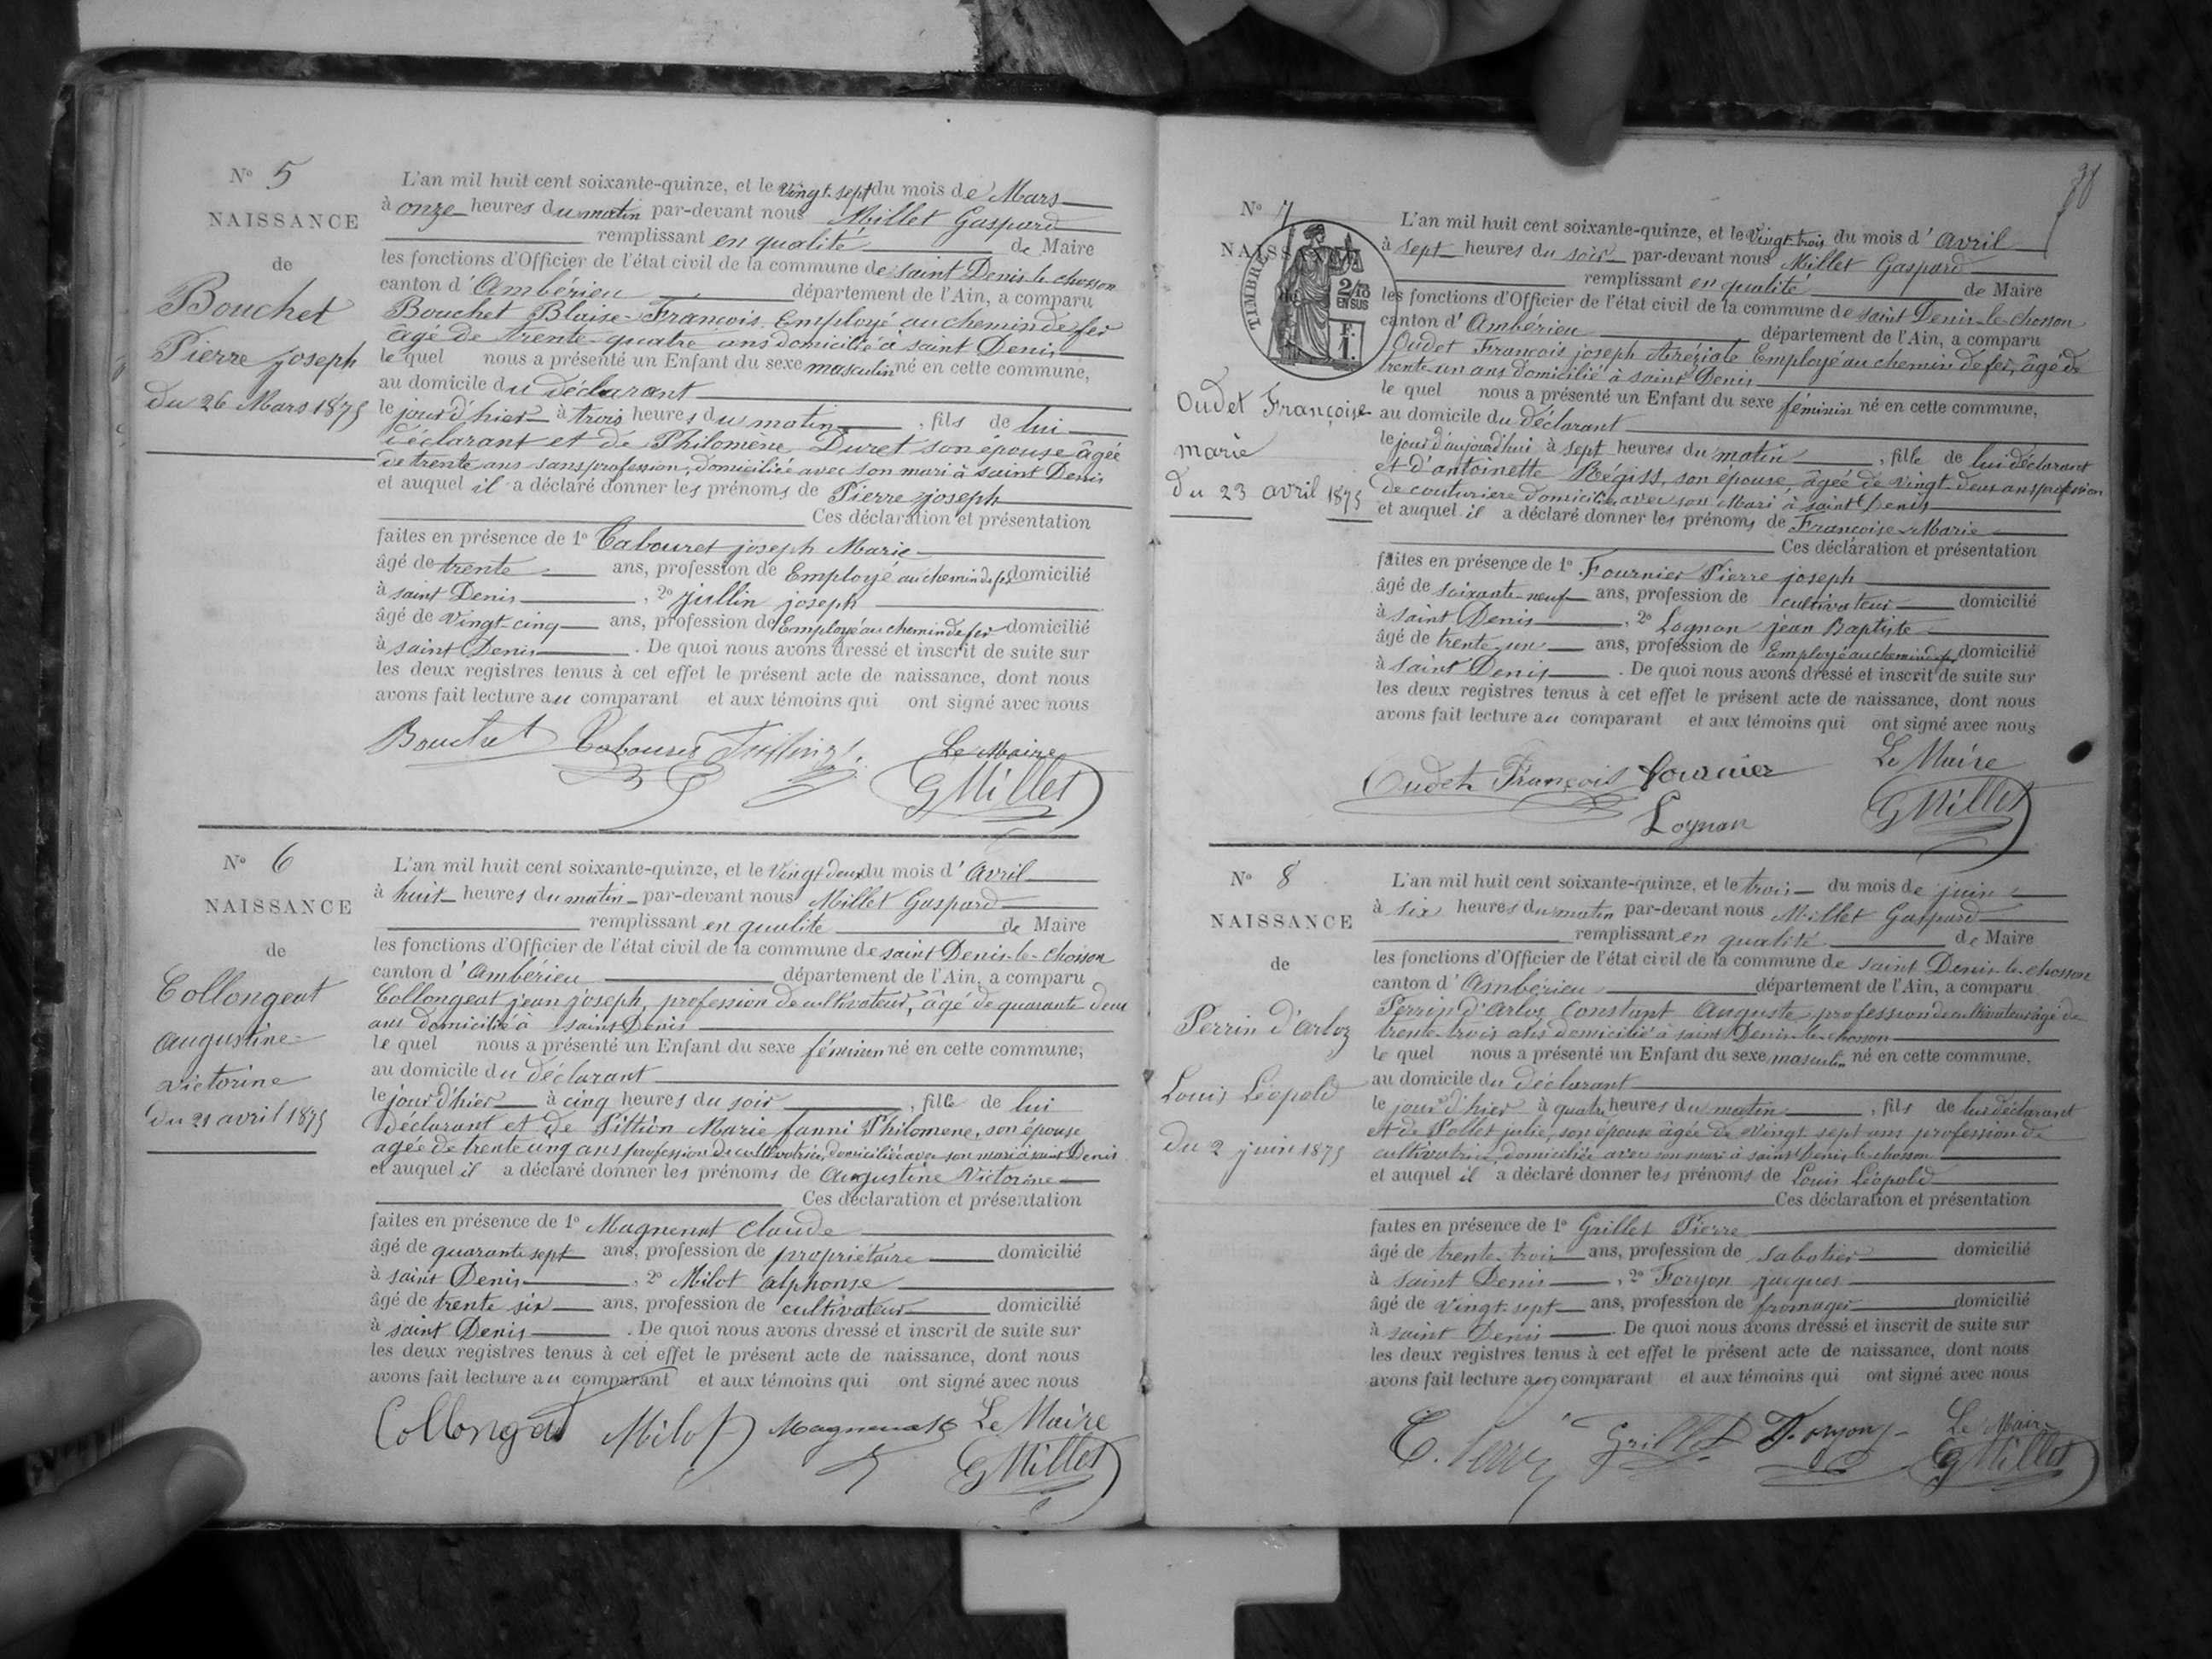 N° 5
NAISSANCE
de
Bouchet
Pierre joseph
du 26 Mars 1875
L'an mil huit cent soixante-quinze, et le vingt-sept du mois de Mars
à onze heures du matin par-devant nous Millet Gaspard
remplissant en qualité de Maire
les fonctions d'Officier de l'état civil de la commune de saint Denis-le-chosson
canton d'Ambérieu département de l'Ain, a comparu
Bouchet Blaise-François, Employé au chemin de fer
âgé de trente-quatre ans domicilié à saint Denis
le quel nous a présenté un Enfant du sexe masculin né en cette commune,
au domicile du déclarant
le jour d'hier à trois heures du matin, fils de lui
déclarant et de Philomène Duret son épouse âgée
de trente ans sans profession, domiciliée avec son mari à saint Denis
et auquel il a déclaré donner les prénoms de Pierre joseph
Ces déclaration et présentation
faites en présence de 1° Cabouret joseph Marie
âgé de trente ans, profession de Employé au chemin de fer domicilié
à saint Denis, 2° jullin joseph
âgé de vingt-cinq ans, profession de Employé au chemin de fer domicilié
à saint Denis. De quoi nous avons dressé et inscrit de suite sur
les deux registres tenus à cet effet le présent acte de naissance, dont nous
avons fait lecture au comparant et aux témoins qui ont signé avec nous
Bouchet Cabouret Jullin j. Le Maire
G Millet
N° 6
NAISSANCE
de
Collongeat
augustine
victorine
du 21 avril 1875
L'an mil huit cent soixante-quinze, et le vingt deux du mois d'avril
à huit heures du matin par-devant nous Millet Gaspard
remplissant en qualité de Maire
les fonctions d'Officier de l'état civil de la commune de saint Denis-le-chosson
canton d'Ambérieu département de l'Ain, a comparu
Collongeat jean joseph, profession de cultivateur, âgé de quarante deux
ans domicilié à saint Denis
le quel nous a présenté un Enfant du sexe féminin né en cette commune,
au domicile du déclarant
le jour d'hier à cinq heures du soir, fille de lui
déclarant et de Pittion Marie fanni Philomene, son épouse
agée de trente cinq ans profession de cultivatrice, domiciliée avec son mari à saint Denis
et auquel il a déclaré donner les prénoms de augustine Victorine
Ces déclaration et présentation
faites en présence de 1° Magnenat Claude
âgé de quarante sept ans, profession de propriétaire domicilié
à saint Denis, 2° Milot alphonse
âgé de trente six ans, profession de cultivateur domicilié
à saint Denis. De quoi nous avons dressé et inscrit de suite sur
les deux registres tenus à cet effet le présent acte de naissance, dont nous
avons fait lecture au comparant et aux témoins qui ont signé avec nous
Collongeat Milot Magnenat Le Maire
G Millet
38
N° 7
NAISS
de
TIMBRE
2/10
EN SUS
F.
1.
Oudet Françoise
marie
du 23 avril 1875
L'an mil huit cent soixante-quinze, et le vingt-trois du mois d'avril
à sept heures du soir par-devant nous Millet Gaspard
remplissant en qualité de Maire
les fonctions d'Officier de l'état civil de la commune de saint Denis-le-chosson
canton d'Ambérieu département de l'Ain, a comparu
Oudet François joseph Employé au chemin de fer, âgé de
trente-un ans domicilié à saint Denis
le quel nous a présenté un Enfant du sexe féminin né en cette commune,
au domicile du déclarant
le jour d'aujourd'hui à sept heures du matin, fille de lui déclarant
et d'antoinette son épouse, âgée de vingt-deux ans profession
de couturiere domiciliée avec son Mari à saint Denis
et auquel il a déclaré donner les prénoms de Françoise-Marie
Ces déclaration et présentation
faites en présence de 1° Fournier Pierre joseph
âgé de soixante-neuf ans, profession de cultivateur domicilié
à saint Denis, 2° Lognan jean Baptiste
âgé de trente-un ans, profession de Employé au chemin de fer domicilié
à saint Denis. De quoi nous avons dressé et inscrit de suite sur
les deux registres tenus à cet effet le présent acte de naissance, dont nous
avons fait lecture au comparant et aux témoins qui ont signé avec nous
Oudet François fournier Le Maire
Lognan G Millet
N° 8
NAISSANCE
de
Perrin d'arloz
Louis Léopold
du 2 juin 1875
L'an mil huit cent soixante-quinze, et le trois du mois de juin
à six heures du matin par-devant nous Millet Gaspard
remplissant en qualité de Maire
les fonctions d'Officier de l'état civil de la commune de saint Denis-le-chosson
canton d'Ambérieu département de l'Ain, a comparu
Perrin d'arloz Constant Auguste profession de cultivateur âgé de
trente-trois ans domicilié à saint Denis-le-chosson
le quel nous a présenté un Enfant du sexe masculin né en cette commune,
au domicile du déclarant
le jour d'hier à quatre heures du matin, fils de lui déclarant
et de Pollet julie, son épouse âgée de vingt sept ans profession de
cultivatrice, domiciliée avec son mari à saint Denis-le-chosson
et auquel il a déclaré donner les prénoms de Louis Léopold
Ces déclaration et présentation
faites en présence de 1° Grillet Pierre
âgé de trente-trois ans, profession de sabotier domicilié
à saint Denis, 2° Foryon jacques
âgé de vingt-sept ans, profession de fromager domicilié
à saint Denis. De quoi nous avons dressé et inscrit de suite sur
les deux registres tenus à cet effet le présent acte de naissance, dont nous
avons fait lecture au comparant et aux témoins qui ont signé avec nous
C. Perrin Grillet Foryon j. Le Maire
G Millet